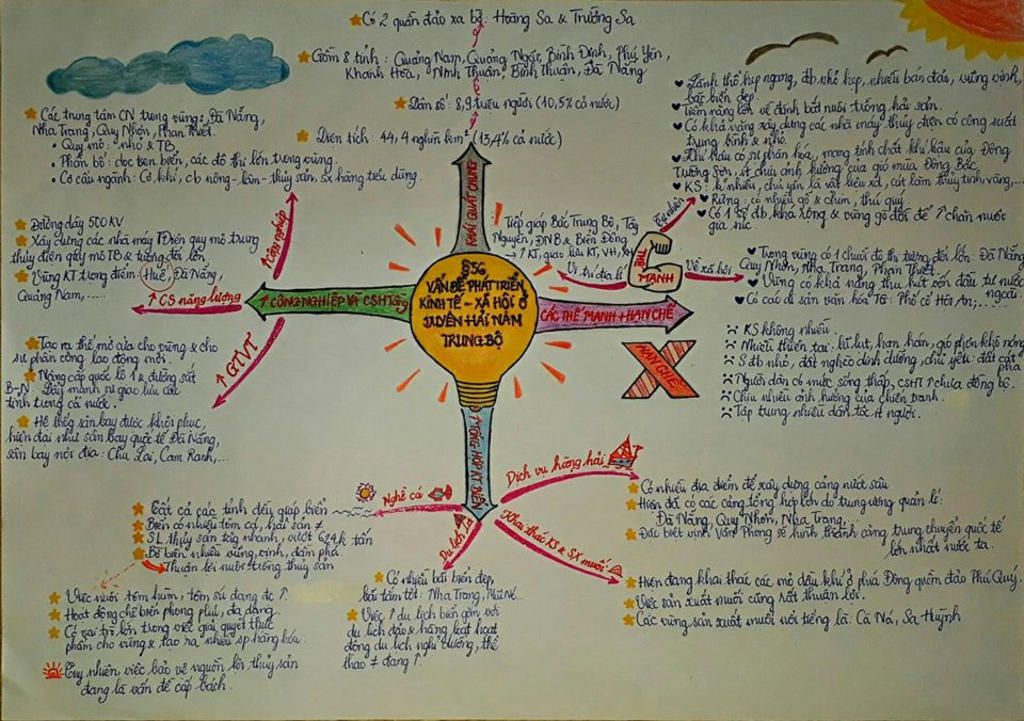 Có 2 quần đảo xa bờ: Hoàng Sa & Trường Sa.
Gồm 8 tỉnh: Quảng Nam, Quảng Ngãi, Bình Định, Phú Yên,
Khánh Hòa, Ninh Thuận, Bình Thuận, Đà Nẵng
Dân số: 8,9 triệu người (10,5% cả nước)
Diện tích: 44,4 nghìn km² (13,4% cả nước)
KHÁI QUÁT CHUNG
§36
VẤN ĐỀ PHÁT TRIỂN
KINH TẾ - XÃ HỘI Ở
DUYÊN HẢI NAM
TRUNG BỘ
Các trung tâm CN trong vùng: Đà Nẵng,
Nha Trang, Quy Nhơn, Phan Thiết.
• Quy mô: nhỏ & TB.
• Phân bố: dọc ven biển, các đô thị lớn trong vùng.
• Cơ cấu ngành: Cơ khí, cb nông-lâm-thủy sản, sx hàng tiêu dùng.
↑ Công nghiệp
Đường dây 500 KV
Xây dựng các nhà máy TĐiện quy mô trung
thủy điện gây mô TB & tương đối lớn.
Vùng KT trọng điểm: Huế, Đà Nẵng,
Quảng Nam,.....
↑ CS năng lượng
↑ CÔNG NGHIỆP VÀ CSHTầng
↑ GTVT
Tạo ra thế mở cửa cho vùng & cho
sự phân công lao động mới.
Nâng cấp quốc lộ 1 & đường sắt
B-N. Đẩy mạnh sự giao lưu các
tỉnh trong cả nước.
Hệ thống sân bay được khôi phục,
hiện đại như sân bay quốc tế Đà Nẵng,
sân bay nội địa: Chu Lai, Cam Ranh,...
CÁC THẾ MẠNH + HẠN CHẾ
THẾ MẠNH
Vị trí địa lí
Tiếp giáp Bắc Trung Bộ, Tây
Nguyên, ĐNB & Biển Đông
→ ↑ KT, giao lưu KT, VH, XH
Tự nhiên
Lãnh thổ hẹp ngang, đb nhỏ hẹp, nhiều bán đảo, vũng vịnh,
bãi biển đẹp.
Tiềm năng lớn về đánh bắt nuôi trồng hải sản.
Có khả năng xây dựng các nhà máy thủy điện có công suất
trung bình & nhỏ.
Khí hậu có sự phân hóa, mang tính chất khí hậu của Đông
Trường Sơn, ít chịu ảnh hưởng của gió mùa Đông Bắc
KS: k nhiều, chủ yếu là vật liệu xd, cát làm thủy tinh, vàng,...
Rừng: có nhiều gỗ & chim, thú quý.
Có 1 số đb, khá rộng & vùng gò đồi để ↑ chăn nuôi
gia súc.
Về xã hội
Trong vùng có 1 chuỗi đô thị tương đối lớn: Đà Nẵng
Quy Nhơn, Nha Trang, Phan Thiết.
Vùng có khả năng thu hút vốn đầu tư nước
ngoài.
Có các di sản văn hóa TG: Phố cổ Hội An;...
HẠN CHẾ
KS không nhiều.
Nhiều thiên tai: lũ lụt, hạn hán, gió phơn khô nóng
S đb nhỏ, đất nghèo dinh dưỡng, chủ yếu: đất cát pha
Người dân có mức sống thấp, CSHT ↑ chưa đồng bộ.
Chịu nhiều ảnh hưởng của chiến tranh.
Tập trung nhiều dân tộc ít người.
↑ TỔNG HỢP KT BIỂN
Nghề cá
Tất cả các tỉnh đều giáp biển
Biển có nhiều tôm cá, hải sản ≠
SL thủy sản tăng nhanh, vượt 624k tấn
Bờ biển nhiều vũng, vịnh, đầm phá
Thuận lợi nuôi trồng thủy sản
Việc nuôi tôm hùm, tôm sú đang đc ↑
Hoạt động chế biến phong phú, đa dạng.
Có vai trò lớn trong việc giải quyết thực
phẩm cho vùng & tạo ra nhiều sp hàng hóa.
Tuy nhiên, việc bảo vệ nguồn lợi thủy sản
đang là vấn đề cấp bách.
Du lịch
Có nhiều bãi biển đẹp,
bãi tắm tốt: Nha Trang, Mũi Né...
Việc ↑ du lịch biển gắn với
du lịch đảo & hàng loạt hoạt
động du lịch nghỉ dưỡng, thể
thao ≠ đang ↑.
Dịch vụ hàng hải
Có nhiều địa điểm để xây dựng cảng nước sâu
Hiện đã có các cảng tổng hợp lớn do trung ương quản lí:
Đà Nẵng, Quy Nhơn, Nha Trang.
Đặc biệt vịnh Vân Phong sẽ hình thành cảng trung chuyển quốc tế
lớn nhất nước ta.
Khai thác KS & SX muối
Hiện đang khai thác các mỏ dầu khí ở phía Đông quần đảo Phú Quý.
Việc sản xuất muối cũng rất thuận lợi.
Các vùng sản xuất muối nổi tiếng là: Cà Ná, Sa Huỳnh.